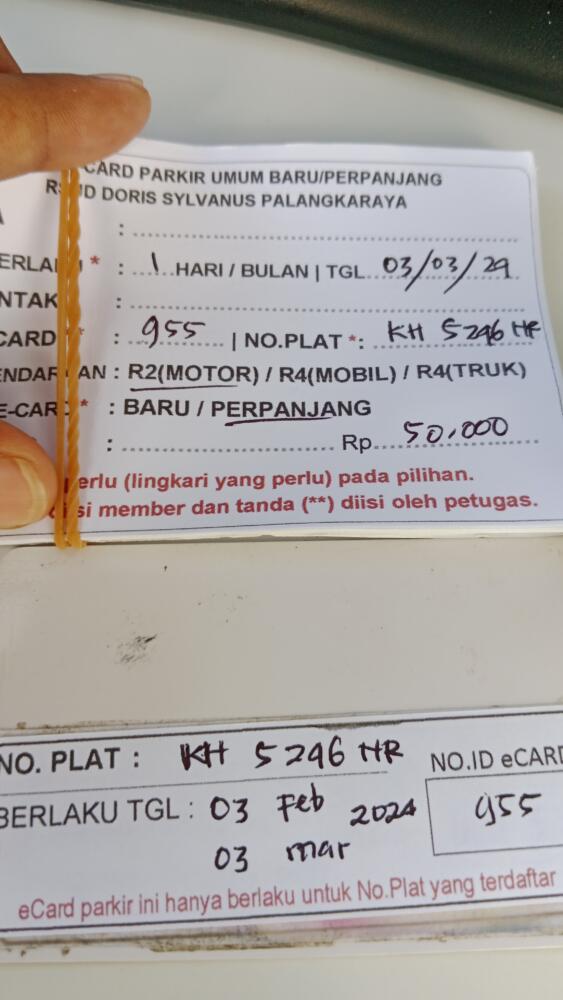 CARD PARKIR UMUM BARU/PERPANJANG
RSUD DORIS SYLVANUS PALANGKARAYA
A :
ERLAKU * : 1 HARI / BULAN | TGL 03/03/29
NTAK :
CARD ** : 955 | NO.PLAT *: KH 5296 HR
ENDARAAN : R2(MOTOR) / R4(MOBIL) / R4(TRUK)
E-CARD * : BARU / PERPANJANG
: Rp 50.000
erlu (lingkari yang perlu) pada pilihan.
diisi member dan tanda (**) diisi oleh petugas.
NO. PLAT : KH 5296 HR
NO.ID eCARD
BERLAKU TGL : 03 Feb 2024
955
03 mar
eCard parkir ini hanya berlaku untuk No.Plat yang terdaftar